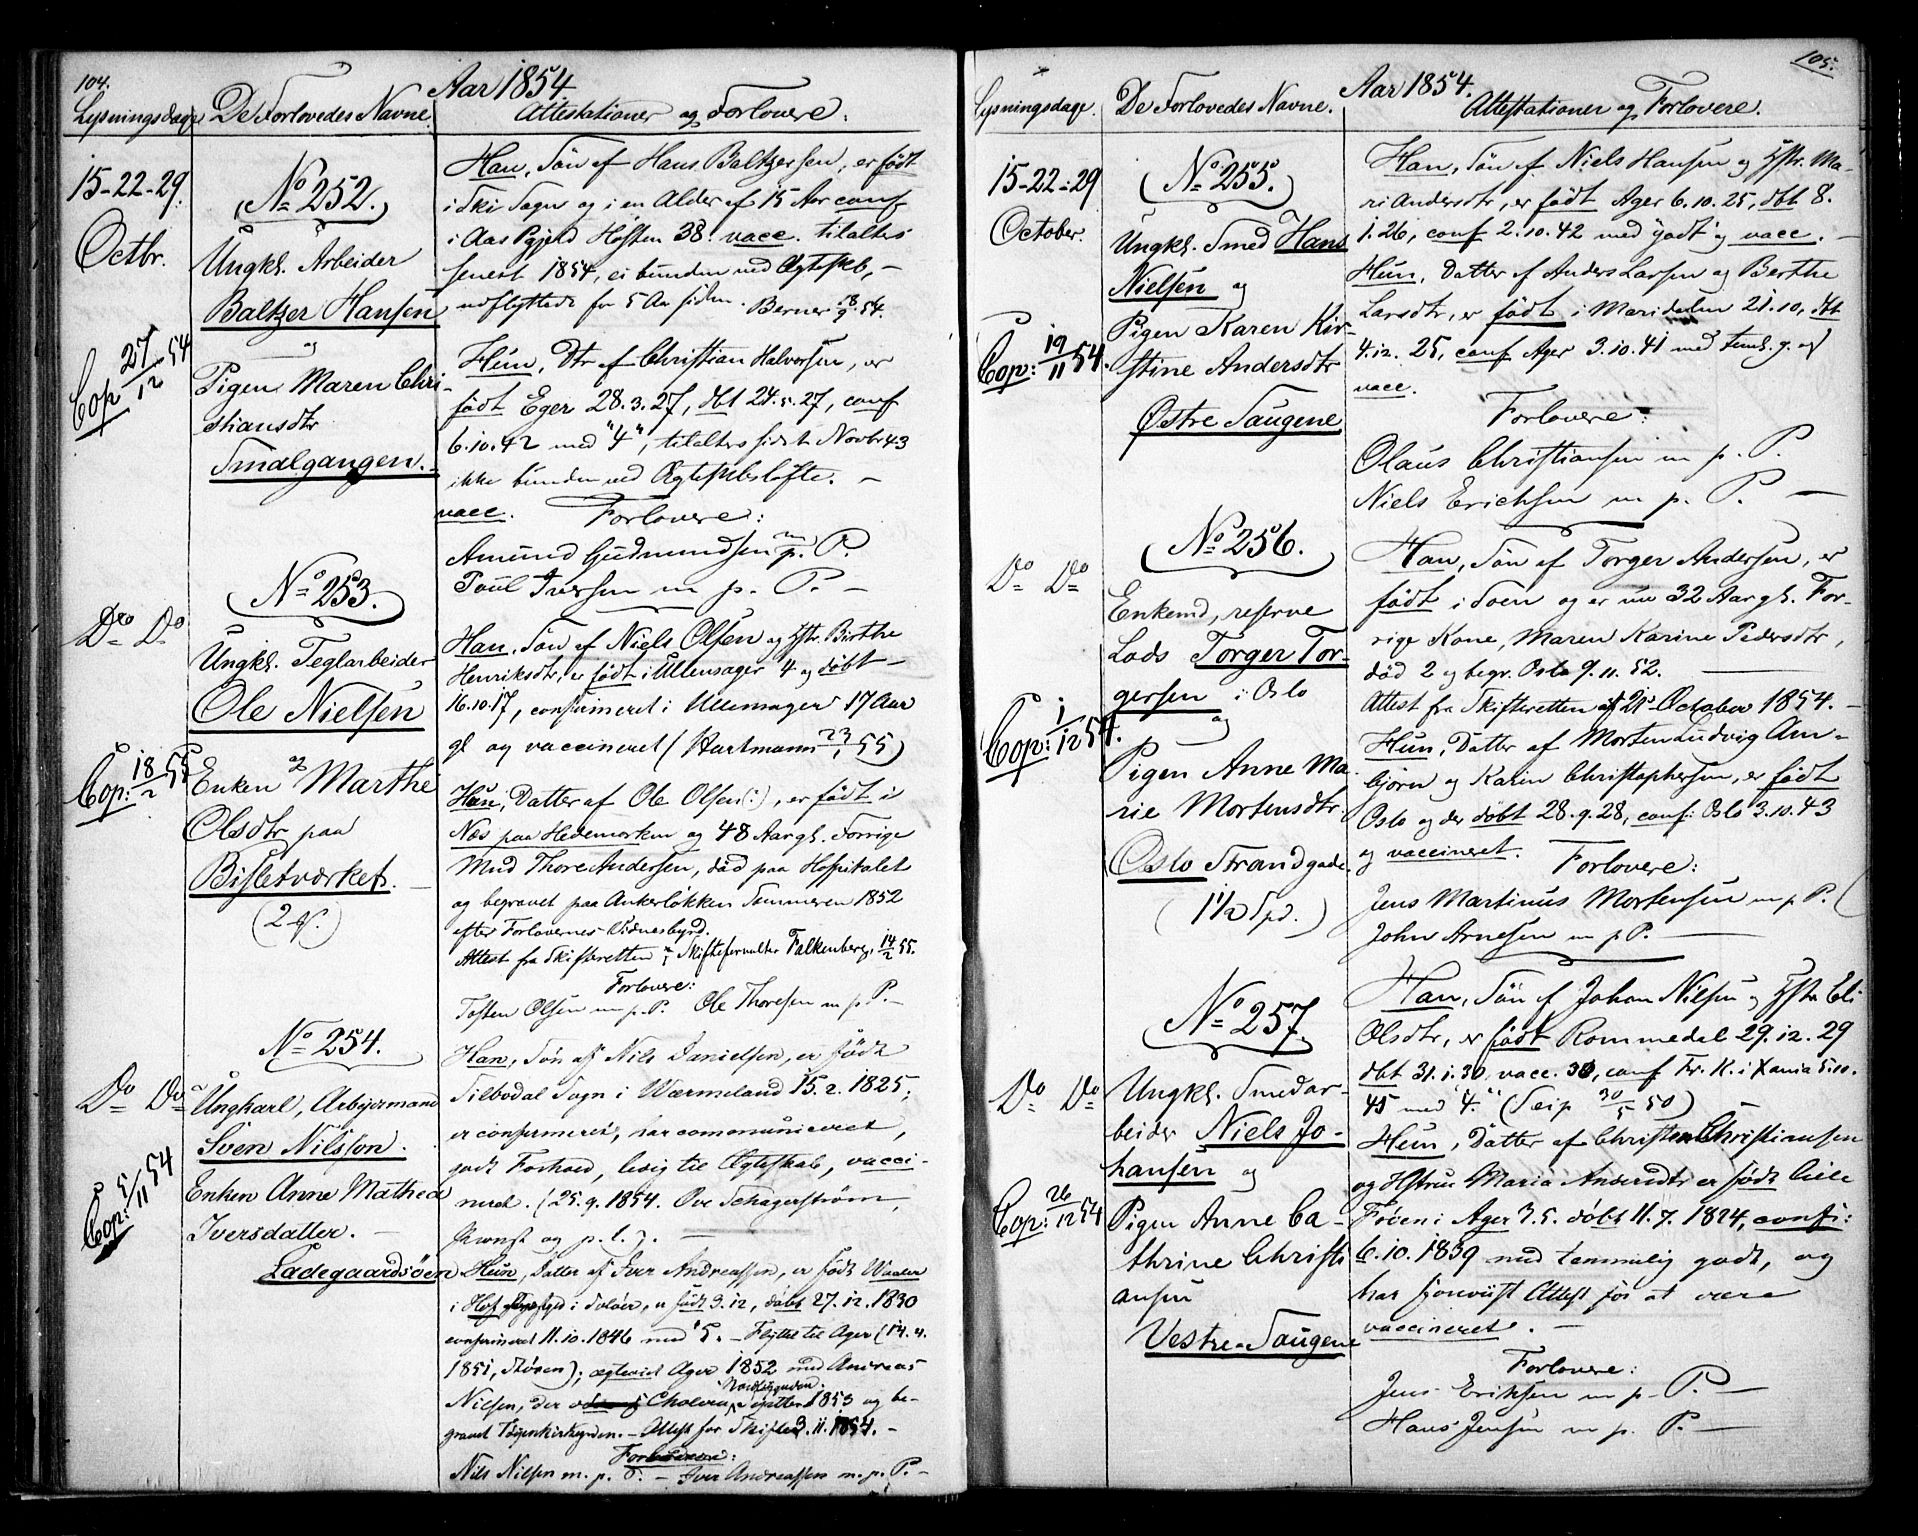 104.
Aar 1854
Lysningsdage De Forlovedes Navne. Attestationer og Forlovere.
15-22-29.
Octbr.
Cop 27/12 54
No 252.
Ungkl. Arbeider
Baltzer Hansen
og
Pigen Maren Chri-
stiansdtr
Smalgangen.
Han, Søn af Hans Baltzersen, er født
i Ski Sogn og i en Alder af 15 Aar conf
i Aas Pgjeld Høsten 38. vacc. tilaltes
senest 1854, ei bunden ved Ægteskb,
udflyttede for 5 Aar siden. Berner 18/9 54.
Hun, Dtr af Christian Halvorsen, er
født Eger 28.3.27, dbt 24.5.27, conf
6.10.42 med "4", tilaltes sidst Novbr 43
ikke bunden ved Ægteskbsløfte. —
vacc. Forlovere:
Amund Gudmundsen m p. P.
Poul Iversen m p. P. —
Do Do
Cop: 18/2 55
No 253.
Ungkl. Teglarbeider
Ole Nielsen
og
Enken Marthe
Olsdtr paa
Bisletværket.
Han, Søn af Niels Olsen og Hstr. Birthe
Henriksdtr, er født i Ullensager 4 og døbt
16.10.17, confirmeret i Ullensager 17 Aar
gl og vaccineret (Hartmann 23/1 55)
Hun, Datter af Ole Olsen (:), er født i
Næs paa Hedemarken og 48 Aar gl. Forrige
Mand Thore Andersen, død paa Hospitalet
og begravet paa Ankerløkken Sommeren 1852
efter Forlovernes Vidnesbyrd.
Attest fra Skifteretten Skifteforvalter Falkenberg, 14/2 55.
Forlovere:
Tosten Olsen m p. P. Ole Thoresen m p P. —
Do Do
Cop: 5/11 54
No 254.
Ungkarl, Arbejdsmand
Sven Nilsson.
Enken Anne Mathea
Iversdatter. —
Ladegaardsöen
Han, Søn af Nils Danielsen, er født
Silbodal Sogn i Wærmeland 15.2.1825;
er confirmeret, har communiceret,
godt Forhold, ledig til Ægteskab, vacci-
neret. (25.9.1854. Ove Schagerström,
Hun, Datter af Iver Andreassen, er født Waaler
i Hof i Soløer, er født 3.12, døbt 27.12.1830
confirmeret 11.10.1846 med "5. — Flyttet til Ager (14.4.
1851, Støren); ægteviet Ager 1852 med Andreas
Nilsen, der Cholera Septbr 1853 og be-
gravet — Attest for Skifte 3.11.1854. —
Forlovere:
Nils Nilsen m. p. P. — Iver Andreassen m. p. P. —
105.
Aar 1854.
Lysningsdage. De Forlovedes Navne. Attestationer og Forlovere.
15-22-29
October.
Cop: 19/11 54.
No 255.
Ungkl. Smed Hans
Nielsen og
Pigen Karen Kir-
stine Andersdtr
Østre Saugene
Han, Søn af Niels Hansen og Hstr. Ma-
ri Andersdtr, er født Ager 6.10.25, dbt 8.
1.26, conf 2.10.42 med godt og vacc. —
Hun, Datter af Anders Larsen og Berthe
Larsdtr, er født i Maridalen 21.10, dbt
4.12.25, conf Ager 3.10.41 med teml. g. og
vacc.
Forlovere:
Olaus Christiansen m p. P.
Niels Erichsen m p. P. —
Do Do
Cop: 1/12 54.
No 256.
Enkemd, reserve
Lods Torger Tor-
gersen i Oslo
og
Pigen Anne Ma-
rie Mortensdtr.
Oslo Strandgade.
(1½ Spd.)
Han, Søn af Torger Andersen, er
født i Soen og er nu 32 Aar gl. For-
rige Kone, Maren Karine Pedersdtr,
død 2 og begr. Oslo 9.11.52. —
Attest fra Skifteretten af 21 October 1854. —
Hun, Datter af Morten Ludvig Am-
bjørn og Karen Christophersen, er født
Oslo og der døbt 28.9.28, conf: Oslo 3.10.43
og vaccineret. Forlovere:
Jens Martinus Mortensen m p P.
John Arnesen m p P. —
Do Do
Cop: 26/12 54
No 257.
Ungkl. Smedar-
beider Niels Jo-
hansen og
Pigen Anne Ca-
thrine Christi-
ansen
Vestre Saugene
Han, Søn af Johan Nilsen og Hstr Eli
Olsdtr, er født Rommedal 29.12.29
dbt 31.1.30, vacc. 30, conf Fr. K. i Xania 5.10.
45 med "4." (Seip 30/5 50)
Hun, Datter af Christen Christiansen
og Hstru Maria Andersdtr er født Lille
Frøen i Ager 3.5. døbt 11.7.1824, conf:
6.10.1839 med temmelig godt, og
har foreviist Attest for at være
vaccineret. —
Forlovere:
Jens Eriksen m p. P. —
Hans Jensen m p. P. —